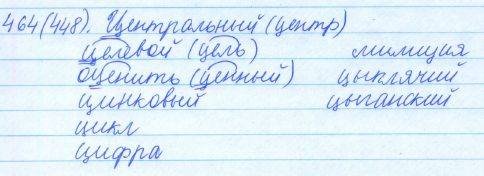 464(448). Центральный (центр)
целевой (цель) милиция
оценить (ценный) цыплячий
цинковый цыганский
цикл
цифра